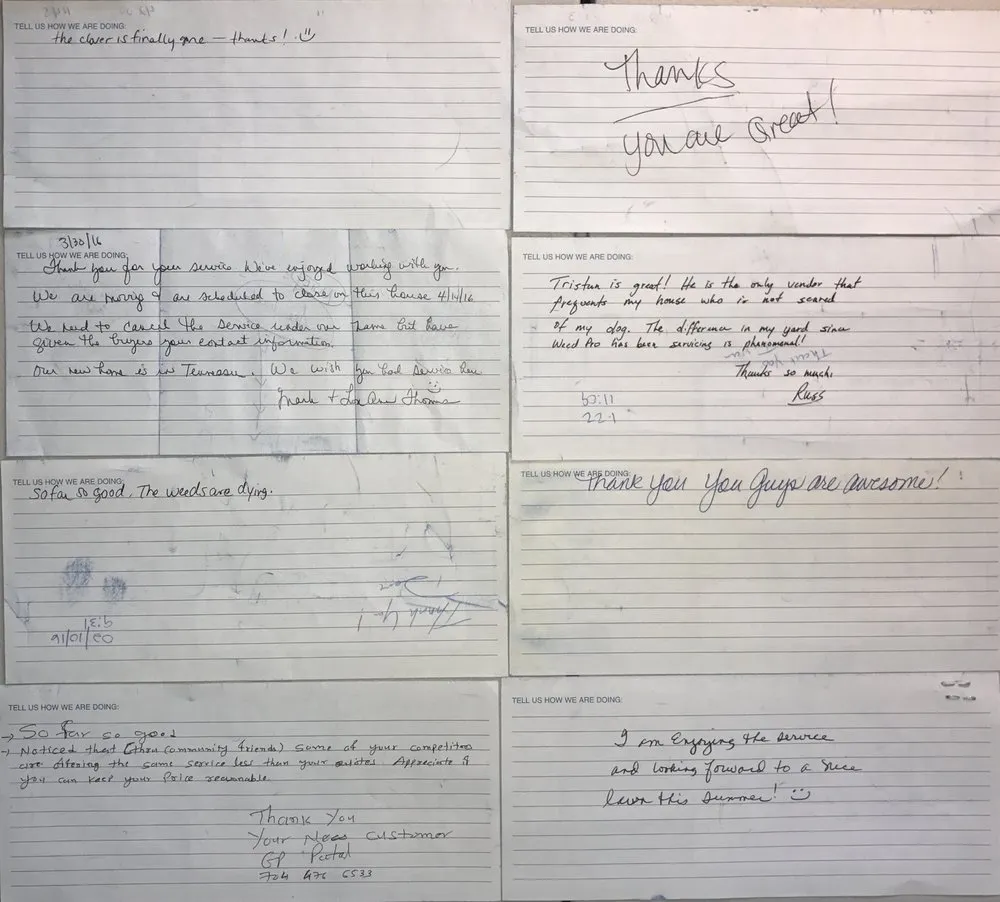 TELL US HOW WE ARE DOING:
the clover is finally gone — thanks! :)
TELL US HOW WE ARE DOING:
Thanks
you are Great!
3/30/16
TELL US HOW WE ARE DOING:
Thank you for your service. We've enjoyed working with you.
We are moving & are scheduled to close on this house 4/14/16
We need to cancel the service under our name but have
given the buyers your contact information.
Our new home is in Tennessee. We wish you had service here
:)
Mark + Lou Ann Thomas
TELL US HOW WE ARE DOING:
Tristun is great! He is the only vendor that
frequents my house who is not scared
of my dog. The difference in my yard since
Weed Pro has been servicing is phenomenal!
Thanks so much,
Russ
TELL US HOW WE ARE DOING:
So far so good. The weeds are dying.
Thank You!
9:31
03/10/16
TELL US HOW WE ARE DOING:
Thank you You Guys are awesome!
TELL US HOW WE ARE DOING:
→ So far so good
→ Noticed that (thru community friends) some of your competitors
are offering the same service less than your quotes. Appreciate if
you can keep your Price reasonable.
Thank You
Your New Customer
GP
704 476 6533
TELL US HOW WE ARE DOING:
I am Enjoying the service
and looking forward to a nice
lawn this summer! :)